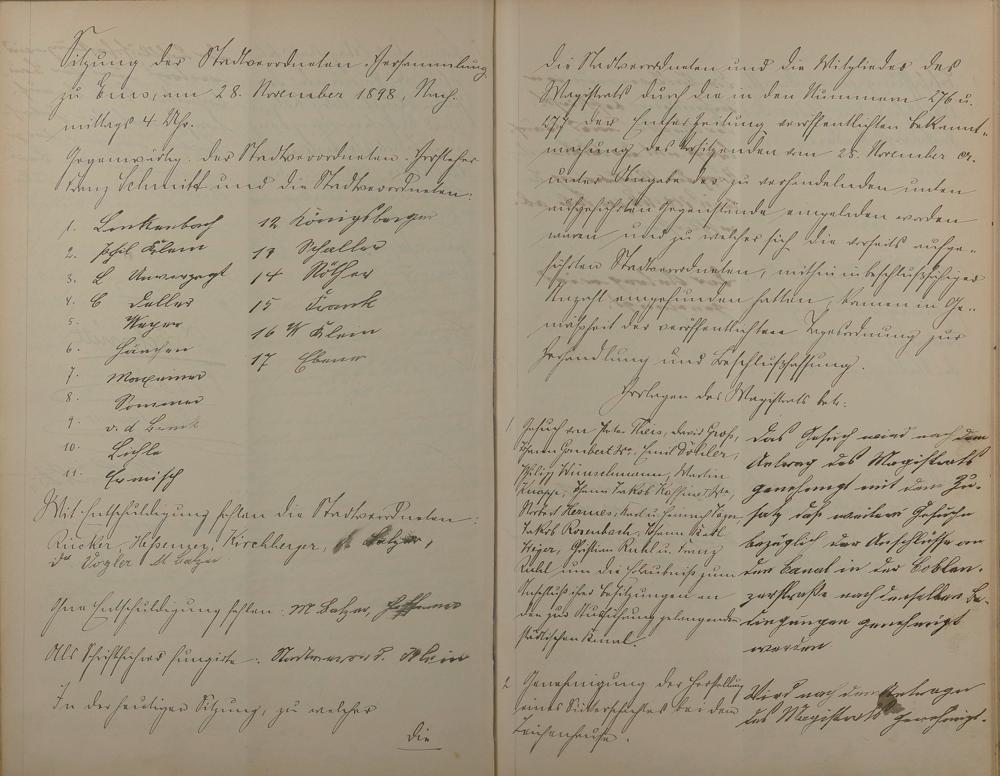 Sitzung der Stadtverordneten-Versammlung
zu Ems, am 28. November 1898, Nach-
mittags 4 Uhr.
Gegenwärtig: der Stadtverordneten-Vorsteher
Franz Schmitt und die Stadtverordneten:
1. Linkenbach
2. Phil Klein
3. L Unverzagt
4. C Deller
5. Meyer
6.
7.
8. Sommer
9. v. d
10.
11. Ermisch
12 Königsberger
13 Schaller
14 Röther
15 Frank
16 W Klein
17 Ebener
Mit Entschuldigung fehlen die Stadtverordneten:
Rücker, Kirchberger,
Dr Vogler
Ohne Entschuldigung fehlen: M Balzer,
Als Schriftführer fungirte: Klein
In der heutigen Sitzung, zu welcher
Die
die Stadtverordneten und die Mitglieder des
Magistrats durch die in den Nummern 276 u.
277 der Emser Zeitung veröffentlichten Bekannt-
machung des Vorsitzenden vom 25. November cr.
unter Angabe der zu verhandelnden unten
aufgeführten Gegenstände eingeladen worden
waren und zu welcher sich die vorseits aufge-
führten Stadtverordneten, mithin in beschlußfähiger
Anzahl eingefunden hatten, kamen in Ge-
mäßheit der veröffentlichten Tagesordnung zur
Verhandlung und Beschlußfassung.
Vorlagen des Magistrats betr:
1 Gesuch von Peter Theis, David Groß,
Emil Döhler,
Philipp Wünschmann, Martin
Knapp, Johann Jakob
Norbert Hermes, Karl u. Heinrich
Jakob Rosenbach, Johann Karl
Heger, Christian Kuhl u. Franz
Kuhl um die Erlaubniß zum
Anschluß ihrer Besitzungen an
den zur Ausführung gelangenden
städtischen Kanal.
Das Gesuch wird nach dem
Antrag des Magistrats
genehmigt mit dem Zu-
satz daß weitere Gesuche
bezüglich der Anschlüsse an
den Canal in der Coblen-
zerstraße nach denselben Be-
dingungen genehmigt
werden
2 Genehmigung der Herstellung
eines bei dem
Leichenhause.
Wird nach dem Antrage
des Magistrats genehmigt.